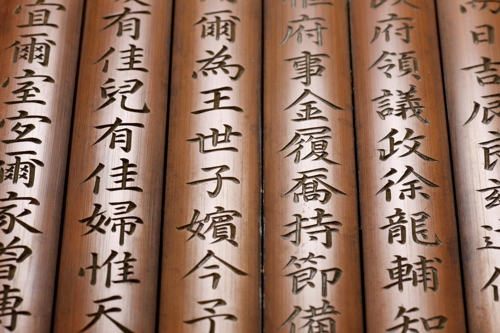 日吉辰良
政府領議政徐龍輔知
府事金履喬持節備
爾為王世子嬪今予
有佳兒有佳婦惟天
宜爾室宜爾家